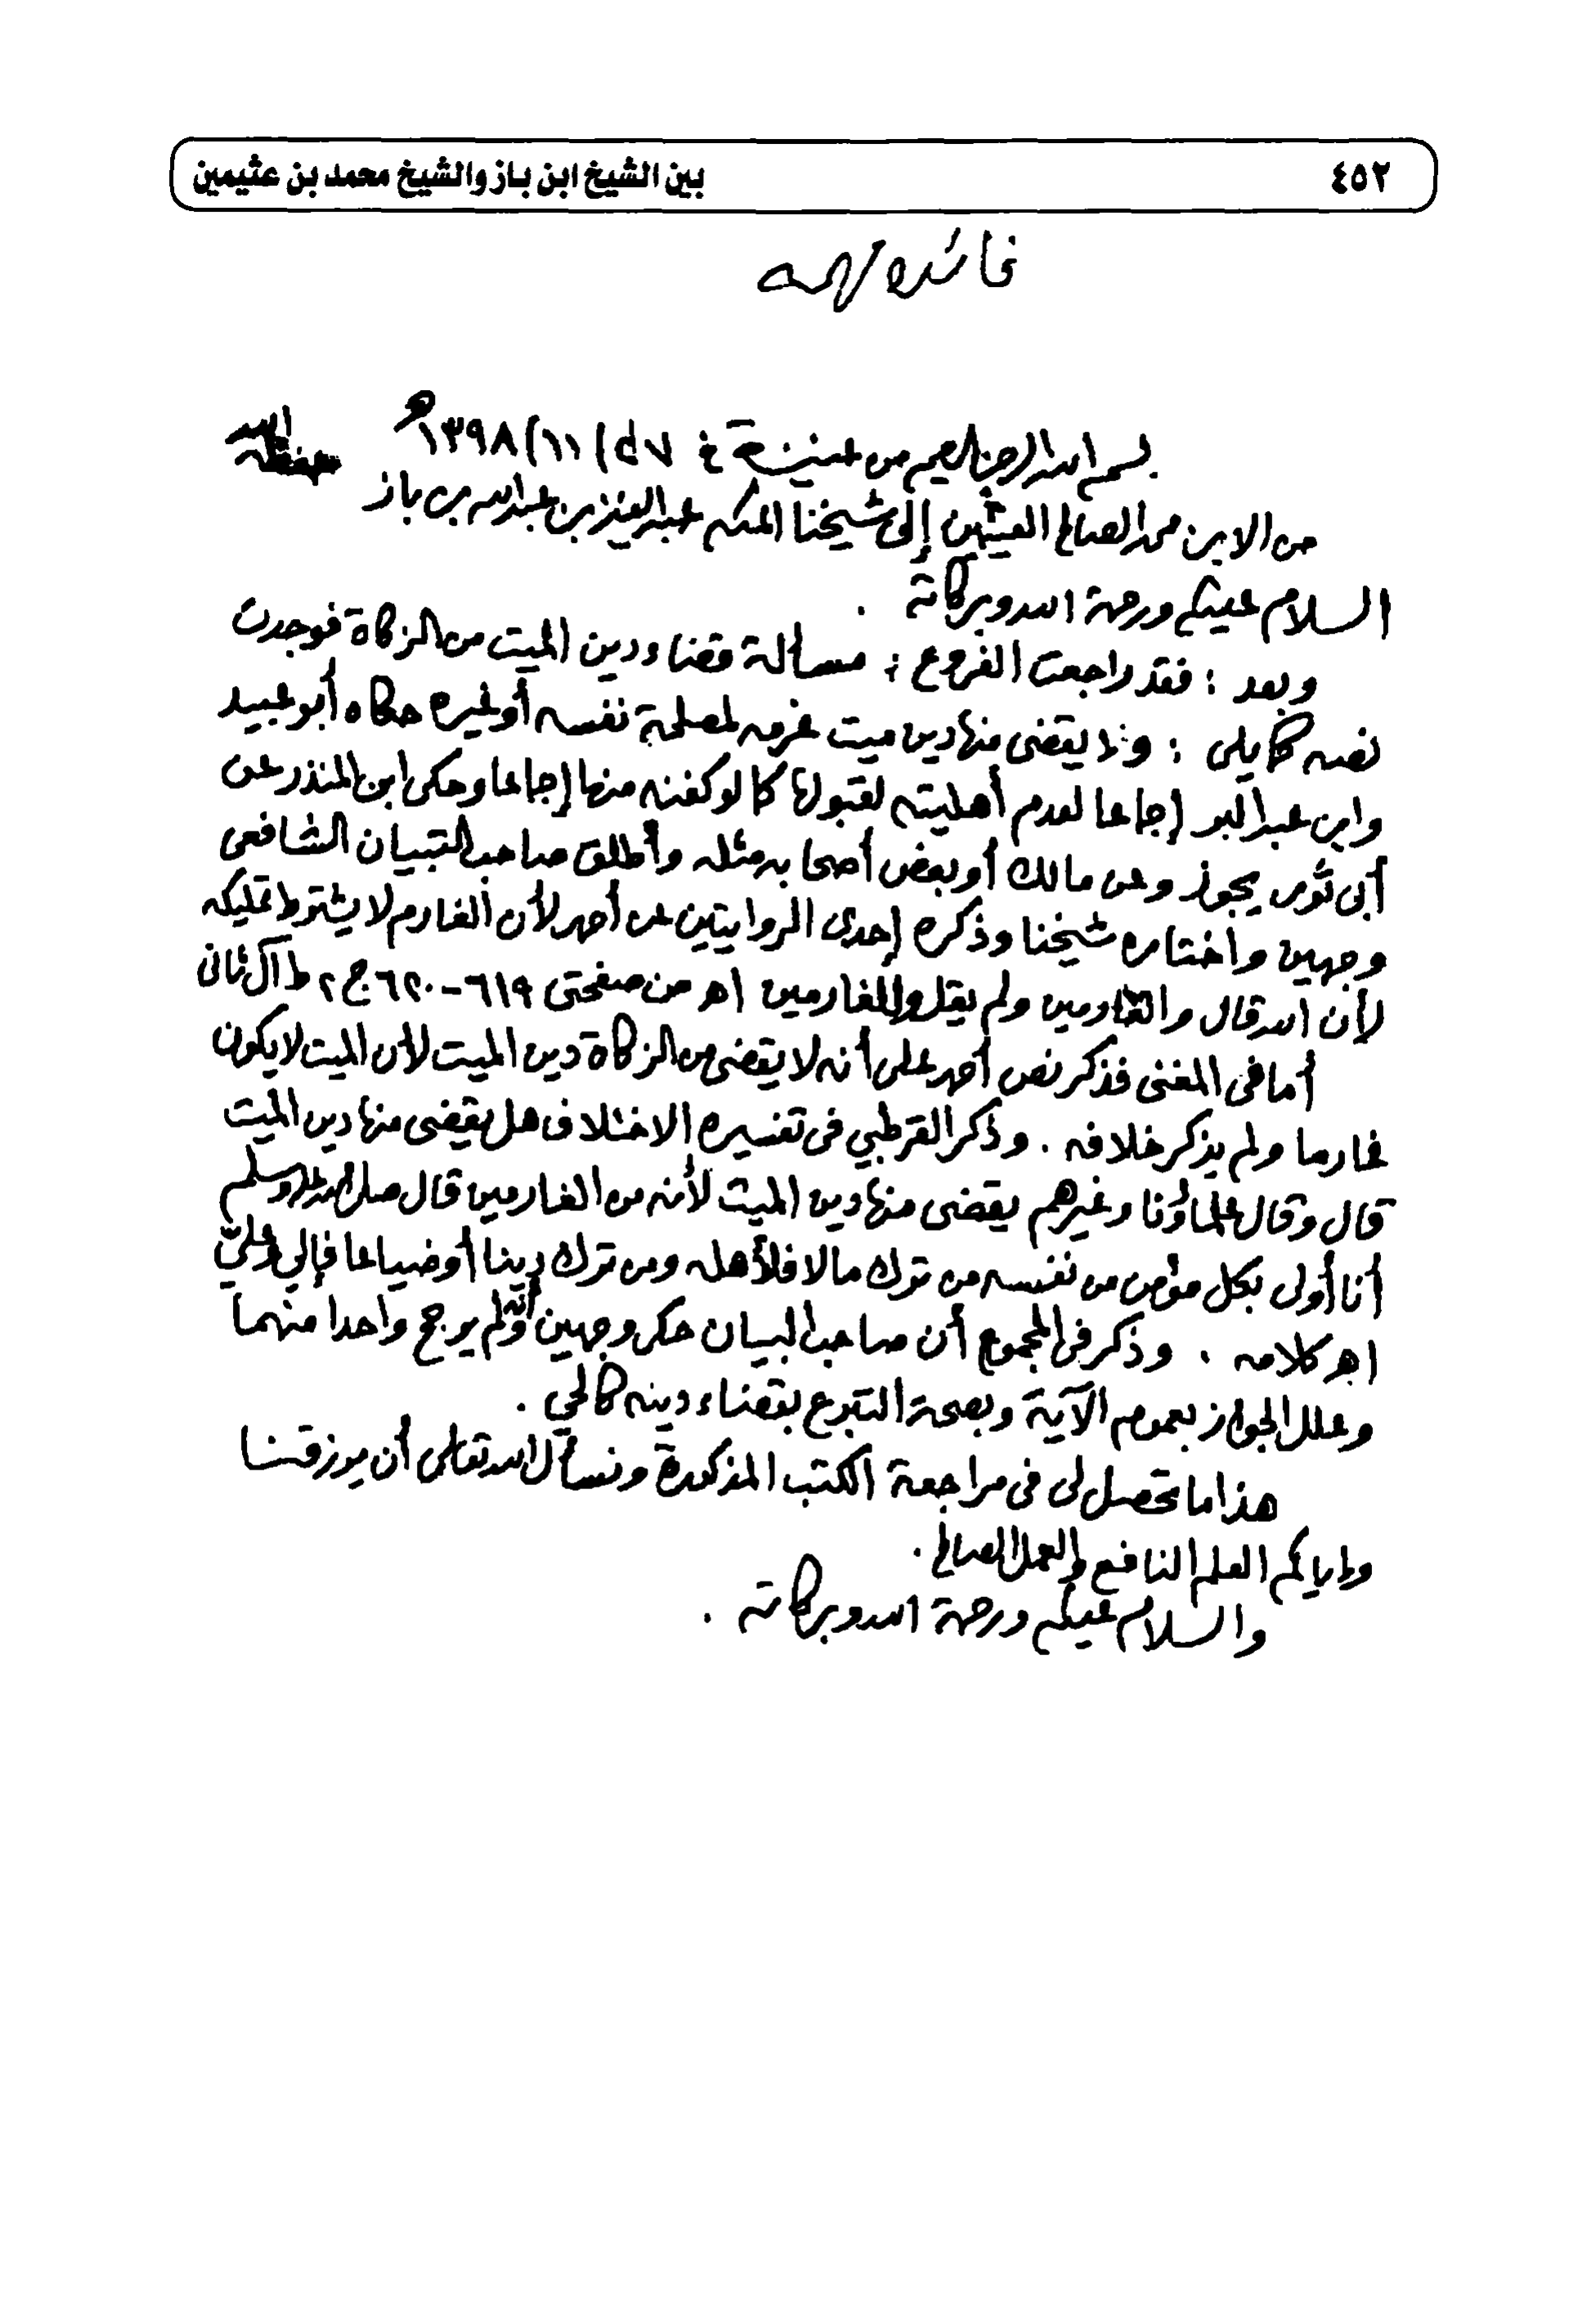 ٤٥٢ بين الشيخ ابن باز والشيخ محمد بن عثيمين
فائده مهمه
بسم الله الرحمن الرحيم من عنيزة في ٢٧/١١/١٣٩٨هـ
من الابن محمد الصالح العثيمين إلى شيخنا المكرم عبد العزيز بن عبد الله بن باز حفظه الله
السلام عليكم ورحمة الله وبركاته .
وبعد : فقد راجعت الفروع : مسألة قضاء دين الميت من الزكاة فوجدت
نصه كما يلي : ولا يقضى منها دين ميت غرمه لمصلحة نفسه أو غيره حكاه أبو عبيد
وابن عبد البر إجماعا لعدم أهليته لقبولها كما لو كفنه منها إجماعا وحكى ابن المنذر عن
أبي ثور يجوز وعن مالك أو بعض أصحابه مثله وأطلق صاحب التبيان الشافعي
وجهين واختاره شيخنا وذكره إحدى الروايتين عن أحمد لأن الغارم لا يشترط تمليكه
لأن الله قال والغارمين ولم يقل وللغارمين اهـ من صفحتى ٦١٩-٦٢٠ ج ٢ ط آل ثاني
أما في المغني فذكر نص أحمد على أنه لا يقضى من الزكاة دين الميت لأن الميت لا يكون
غارما ولم يذكر خلافه . وذكر القرطبي في تفسيره الاختلاف هل يقضى منها دين الميت
قال وقال علماؤنا وغيرهم يقضى منها دين الميت لأنه من الغارمين قال صلى الله عليه وسلم
أنا أولى بكل مؤمن من نفسه من ترك مالا فلأهله ومن ترك دينا أو ضياعا فإلي وعلي
اهـ كلامه . وذكر في المجموع أن صاحب البيان حكى وجهين وأنه لم يرجح واحدا منهما
وعلل الجواز بعموم الآية وبصحة التبرع بقضاء دينه كالحي .
هذا ما تحصل لي في مراجعة الكتب المذكورة ونسأل الله تعالى أن يرزقنا
وإياكم العلم النافع والعمل الصالح .
والسلام عليكم ورحمة الله وبركاته .